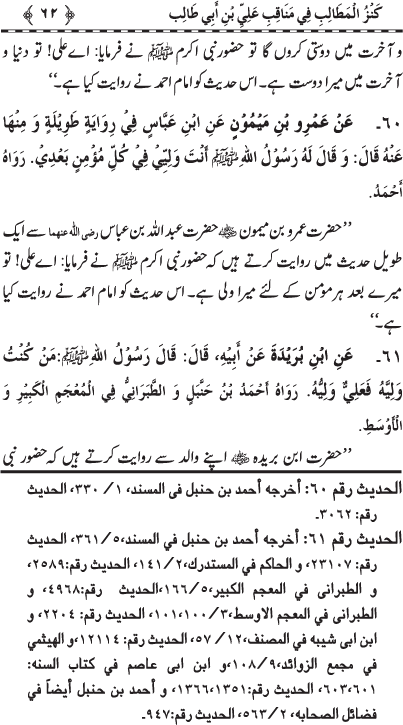 كَنْزُ الْمَطَالِبِ فِي مَنَاقِبِ عَلِيِّ بْنِ أَبِي طَالِبٍ ﴿ ۶۲ ﴾
و آخرت میں دوستی کروں گا تو حضور نبی اکرم ﷺ نے فرمایا: اے علی! تو دنیا و
آخرت میں میرا دوست ہے۔ اس حدیث کو امام احمد نے روایت کیا ہے۔‘‘
۶۰۔ عَنْ عَمْرِو بْنِ مَيْمُوْنٍ عَنِ ابْنِ عَبَّاسٍ فِيْ رِوَايَةٍ طَوِيْلَةٍ وَ مِنْهَا
عَنْهُ قَالَ: وَ قَالَ لَهُ رَسُوْلُ اللهِ ﷺ أَنْتَ وَلِيِّيْ فِيْ كُلِّ مُؤْمِنٍ بَعْدِيْ. رَوَاهُ
أَحْمَدُ.
’’حضرت عمرو بن میمون ﷜ حضرت عبد اللہ بن عباس رضی اللہ عنھما سے ایک
طویل حدیث میں روایت کرتے ہیں کہ حضور نبی اکرم ﷺ نے فرمایا: اے علی! تو
میرے بعد ہر مومن کے لئے میرا ولی ہے۔ اس حدیث کو امام احمد نے روایت کیا
ہے۔‘‘
۶۱۔ عَنِ ابْنِ بُرَيْدَةَ عَنْ أَبِيْهِ، قَالَ: قَالَ رَسُوْلُ اللهِ ﷺ:مَنْ كُنْتُ
وَلِيَّهُ فَعَلِيٌّ وَلِيُّهُ. رَوَاهُ أَحْمَدُ بْنُ حَنْبَلٍ وَ الطَّبَرَانِيُّ فِي الْمُعْجَمِ الْكَبِيْرِ وَ
الْأَوْسَطِ.
’’حضرت ابن بریدہ ﷜ اپنے والد سے روایت کرتے ہیں کہ حضور نبی
الحديث رقم ۶۰: أخرجه أحمد بن حنبل فى المسند، ۱/ ۳۳۰، الحديث
رقم: ۳۰۶۲۔
الحديث رقم ۶۱: أخرجه أحمد بن حنبل في المسند،۵/۳۶۱، الحديث
رقم: ۲۳۱۰۷، و الحاكم في المستدرك،۲/۱۴۱، الحديث رقم:۲۵۸۹،
و الطبراني في المعجم الكبير،۵/۱۶۶،الحديث رقم:۴۹۶۸، و
الطبرانى في المعجم الاوسط،۳/۱۰۰،۱۰۱، الحديث رقم: ۲۲۰۴، و
ابن ابى شيبه في مصنف،۱۲/ ۵۷، الحديث رقم:۱۲۱۱۴، و الهيثمي
في مجمع الزوائد،۹/۱۰۸، و ابن ابى عاصم في كتاب السنه:
۶۰۱،۶۰۳، الحديث رقم:۱۳۵۱،۱۳۶۶، و أحمد بن حنبل أيضاً في
فضائل الصحابه، ۲/۵۶۳، الحديث رقم:۹۴۷۔